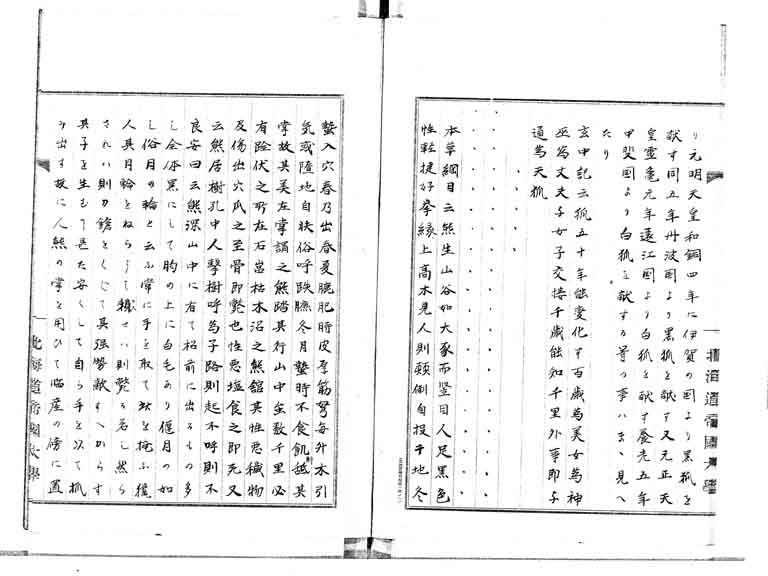 り元明天皇和銅四年に伊賀の国より黒狐を
献す同五年丹波国より黒狐を献す又元正天
皇霊亀元年遠江国より白狐を献す養老五年
甲斐国より白狐を献する等の事はまゝ見へ
たり
玄中記云狐五十年能変化す百歳為美女為神
巫為丈夫子女子交接千歳能知千里外事即子
通為天狐
本草綱目云熊生山谷如大豕而竪目人足黒色
性軽捷好攀縁上高木見人則顛倒自投于地冬
蟄入穴春乃出春夏臕肥時皮厚筋弩毎升木引
気或墮地自快俗呼跌臕冬月蟄時不食飢則舐其
掌故其美在掌謂之熊蹯其行山中雖数千里必
有跧伏之所在石嵓枯木沼之熊館其性悪穢物
及傷出穴爪之至骨即斃也性悪塩食之即死又
云熊居樹孔中人撃樹呼為子路則起不呼則不
良安曰云熊深山中に有て松前に出るもの多
し全体黒にして胸の上に白毛あり偃月の如
し俗月の輪と云ふ常に手を取て
人其月輪をねらうて
されハ則
其子を生もて
み出す故に人熊の掌を用ひて臨産の傍に置
北海道帝国大学